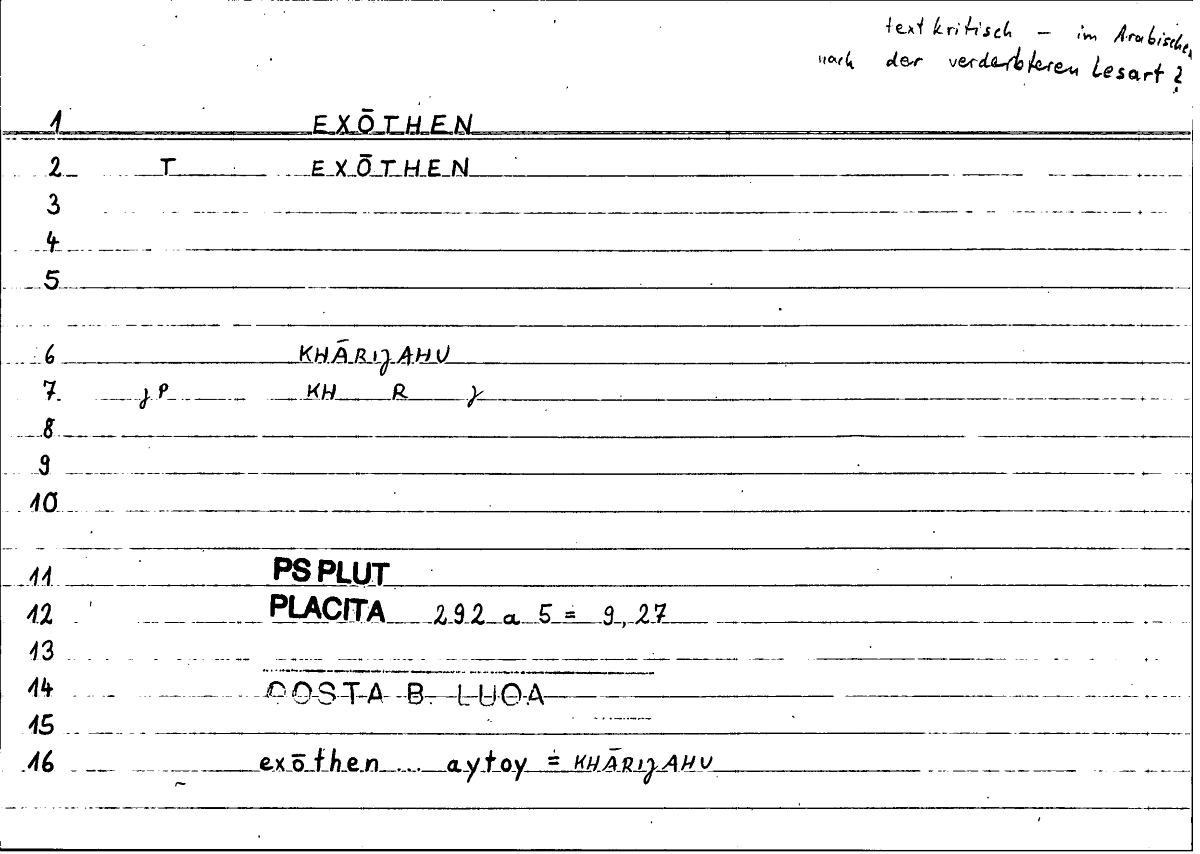 textkritisch – im Arabischen
nach der verderbteren Lesart?
1 EXŌTHEN
2 T EXŌTHEN
3
4
5
6 KHĀRIJAHU
7 JP KH R J
8
9
10
11 PS PLUT
12 PLACITA 292 a 5 = 9,27
13
14 QOSTA B. LUQA
15
16 exōthen ... aytoy = KHĀRIJAHU